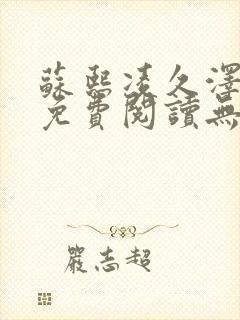 蘇熙凌久澤
免費閱讀無
嚴志超